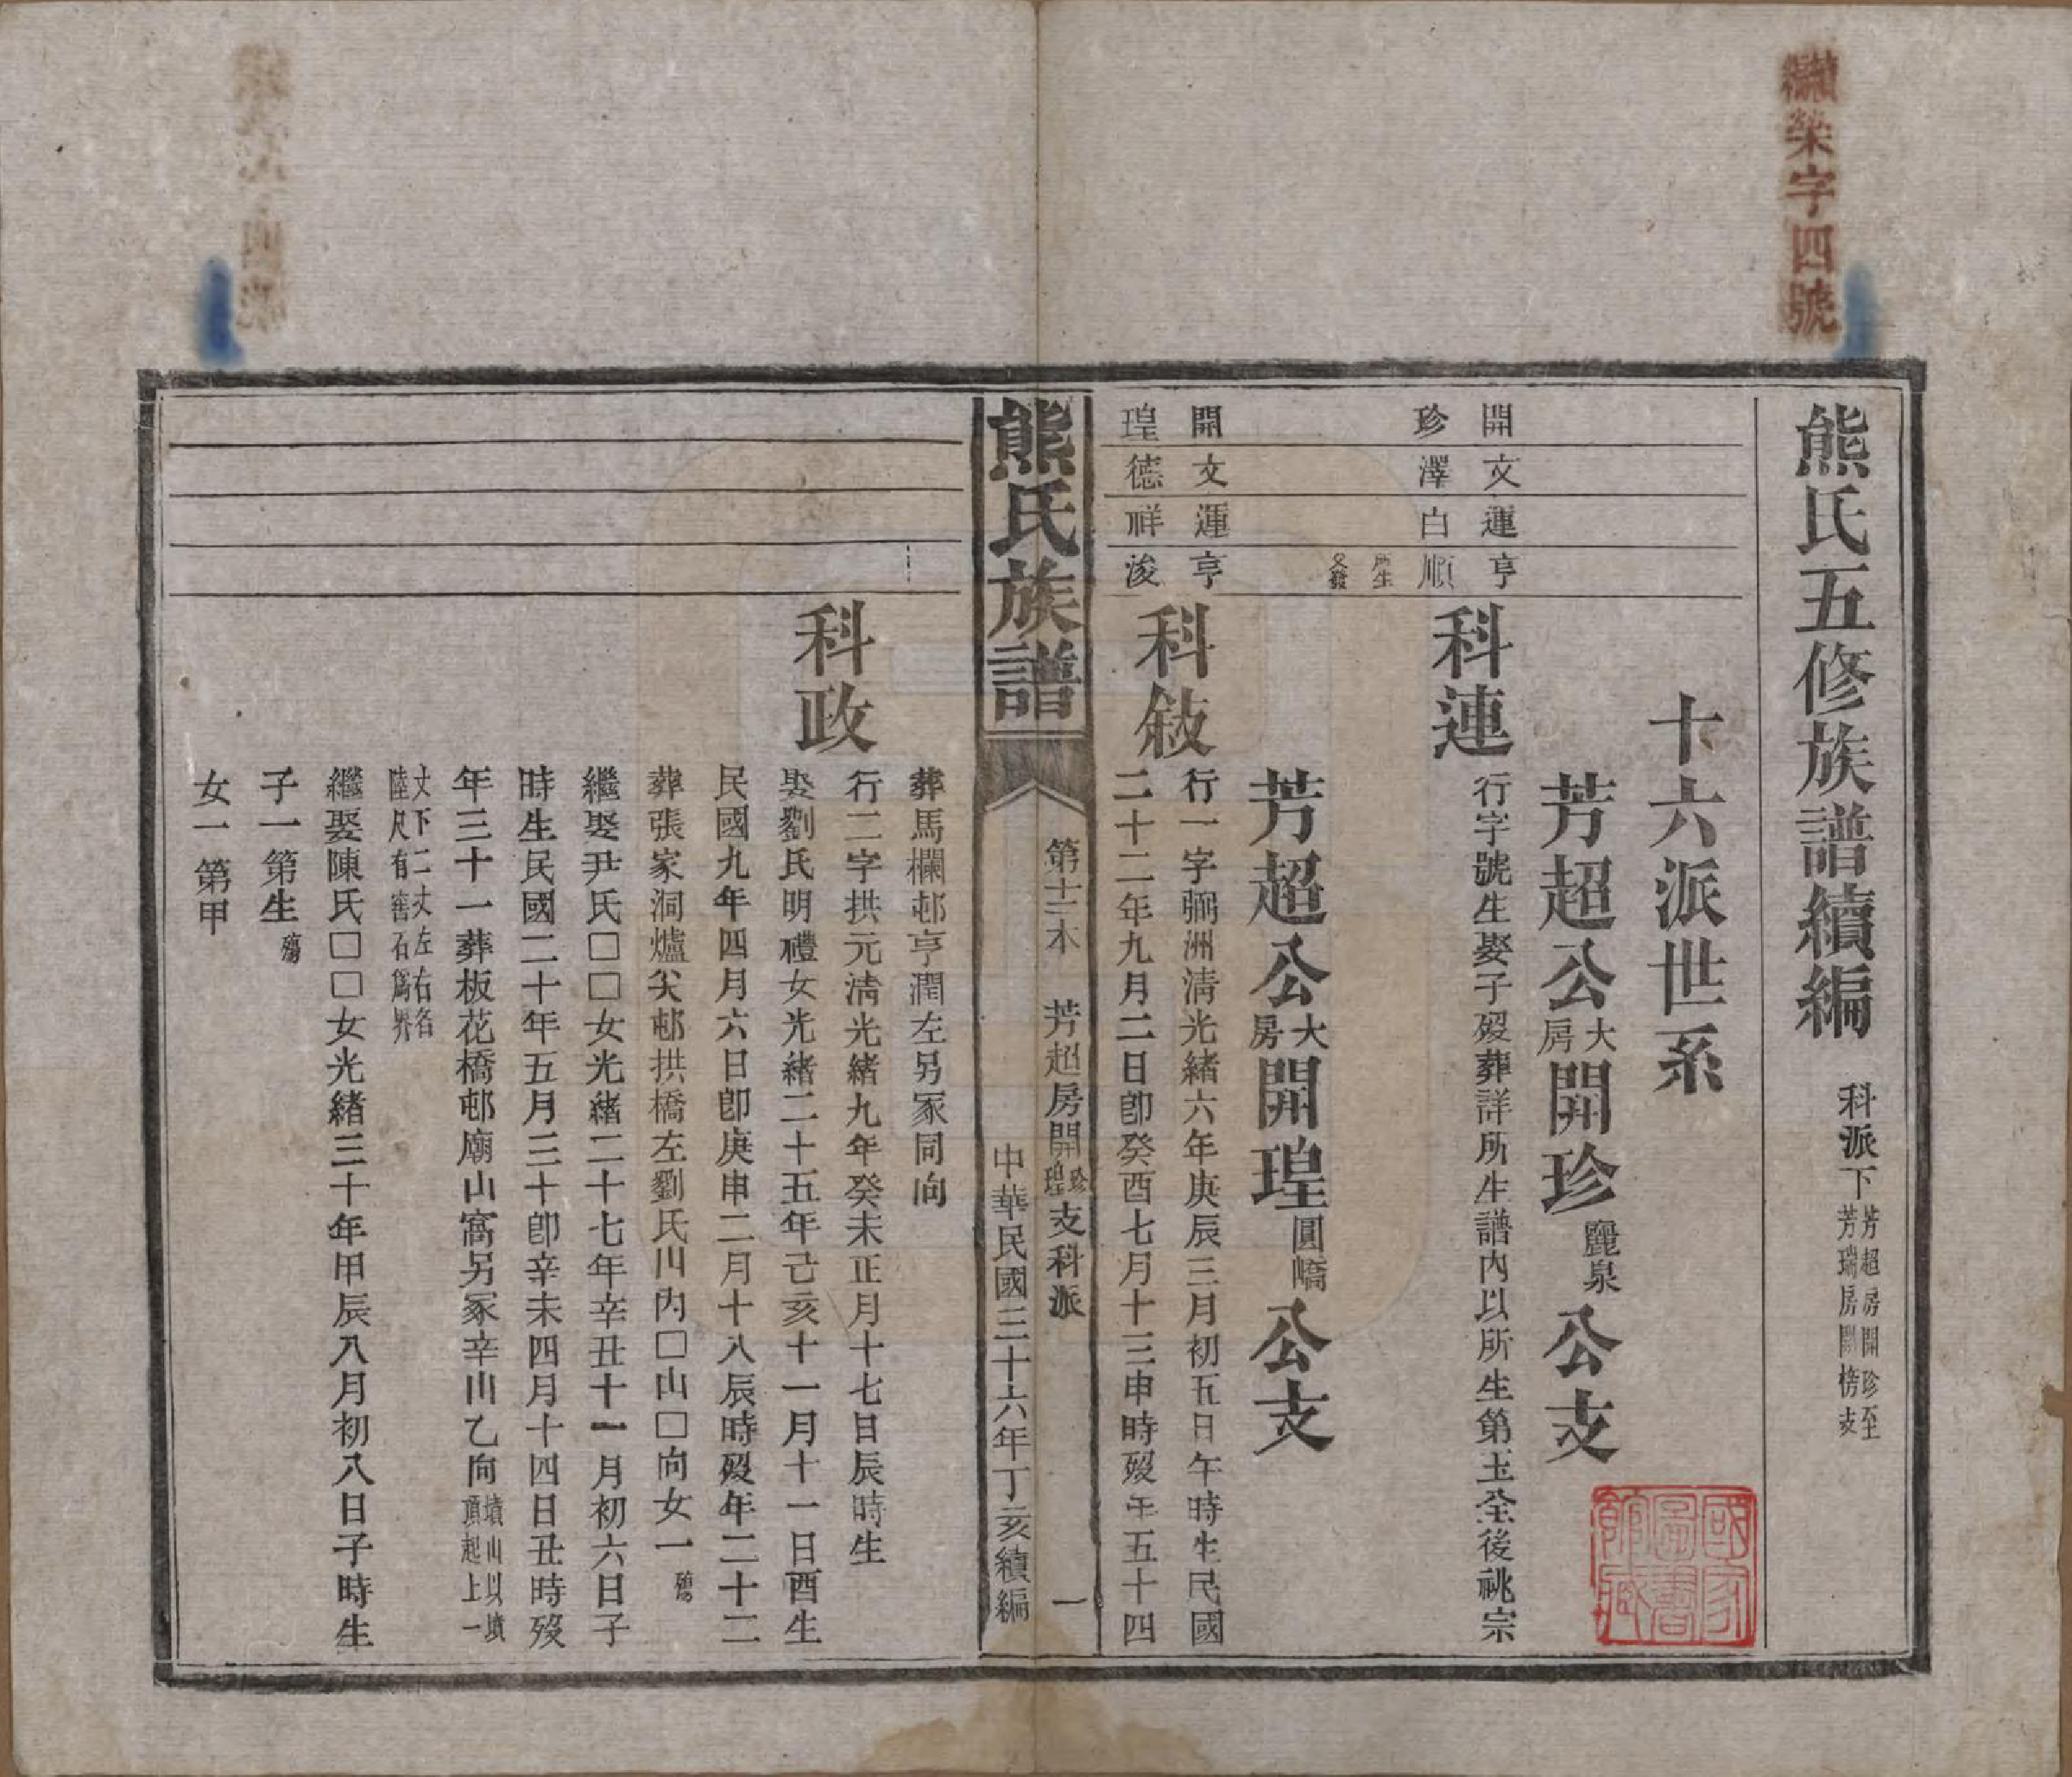 續編榮字四號
熊氏五修族譜續編 科派下 芳超房開珍至 芳瑞房開榜支
國家圖書館藏
十六派世系
芳超公大房開珍麗泉公支
開文運亨
珍澤白順 所生
科連
行字號生娶子歿葬詳所生譜內以所生第玉全後祧宗
芳超公大房開瑝圓嶠公支
開文運亨
瑝德祥浚
科敍
行一字弼洲淸光緒六年庚辰三月初五日午時生民國
二十二年九月二日卽癸酉七月十三申時歿年五十四
熊氏族譜 第十二本 芳超房開珍瑝支科派 一
中華民國三十六年丁亥續編
葬馬欄邨亨潤左另冢同向
科政
行二字拱元淸光緒九年癸未正月十七日辰時生
娶劉氏明禮女光緒二十五年己亥十一月十一日酉生
民國九年四月六日卽庚申二月十八辰時歿年二十二
葬張家洞爐尖邨拱橋左劉氏山內□山□向女一殤
繼娶尹氏□□女光緒二十七年辛丑十一月初六日子
時生民國二十年五月三十卽辛未四月十四日丑時歿
年三十一葬板花橋邨廟山窩另冢辛山乙向墳山以墳頂起上一
丈下二丈左右各陸尺有窖石爲界
繼娶陳氏□□女光緒三十年甲辰八月初八日子時生
子一第生殤
女一第甲